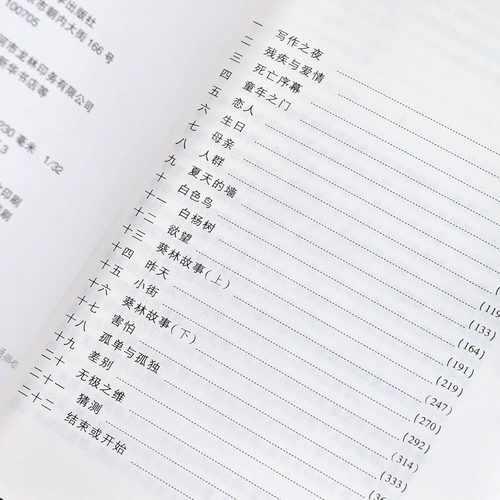 出版社
市朝内大街 166 号
100705
市龙林印务有限公司
新华书店等
230 毫米 1/32
印刷
印刷
一 写作之夜
二 残疾与爱情
三 死亡序幕
四 童年之门
五 恋人
六 生日
七 母亲
八 人群
九 夏天的墙
十 白色鸟
十一 白杨树
十二 欲望
十三 葵林故事(上)
十四 昨天
十五 小街
十六 葵林故事(下)
十七 害怕
十八 孤单与孤独
十九 差别
二十 无极之维
二十一 猜测
二十二 结束或开始
(119
(133)
(164)
(191)
(219)
(247)
(270)
(292)
(314)
(333)